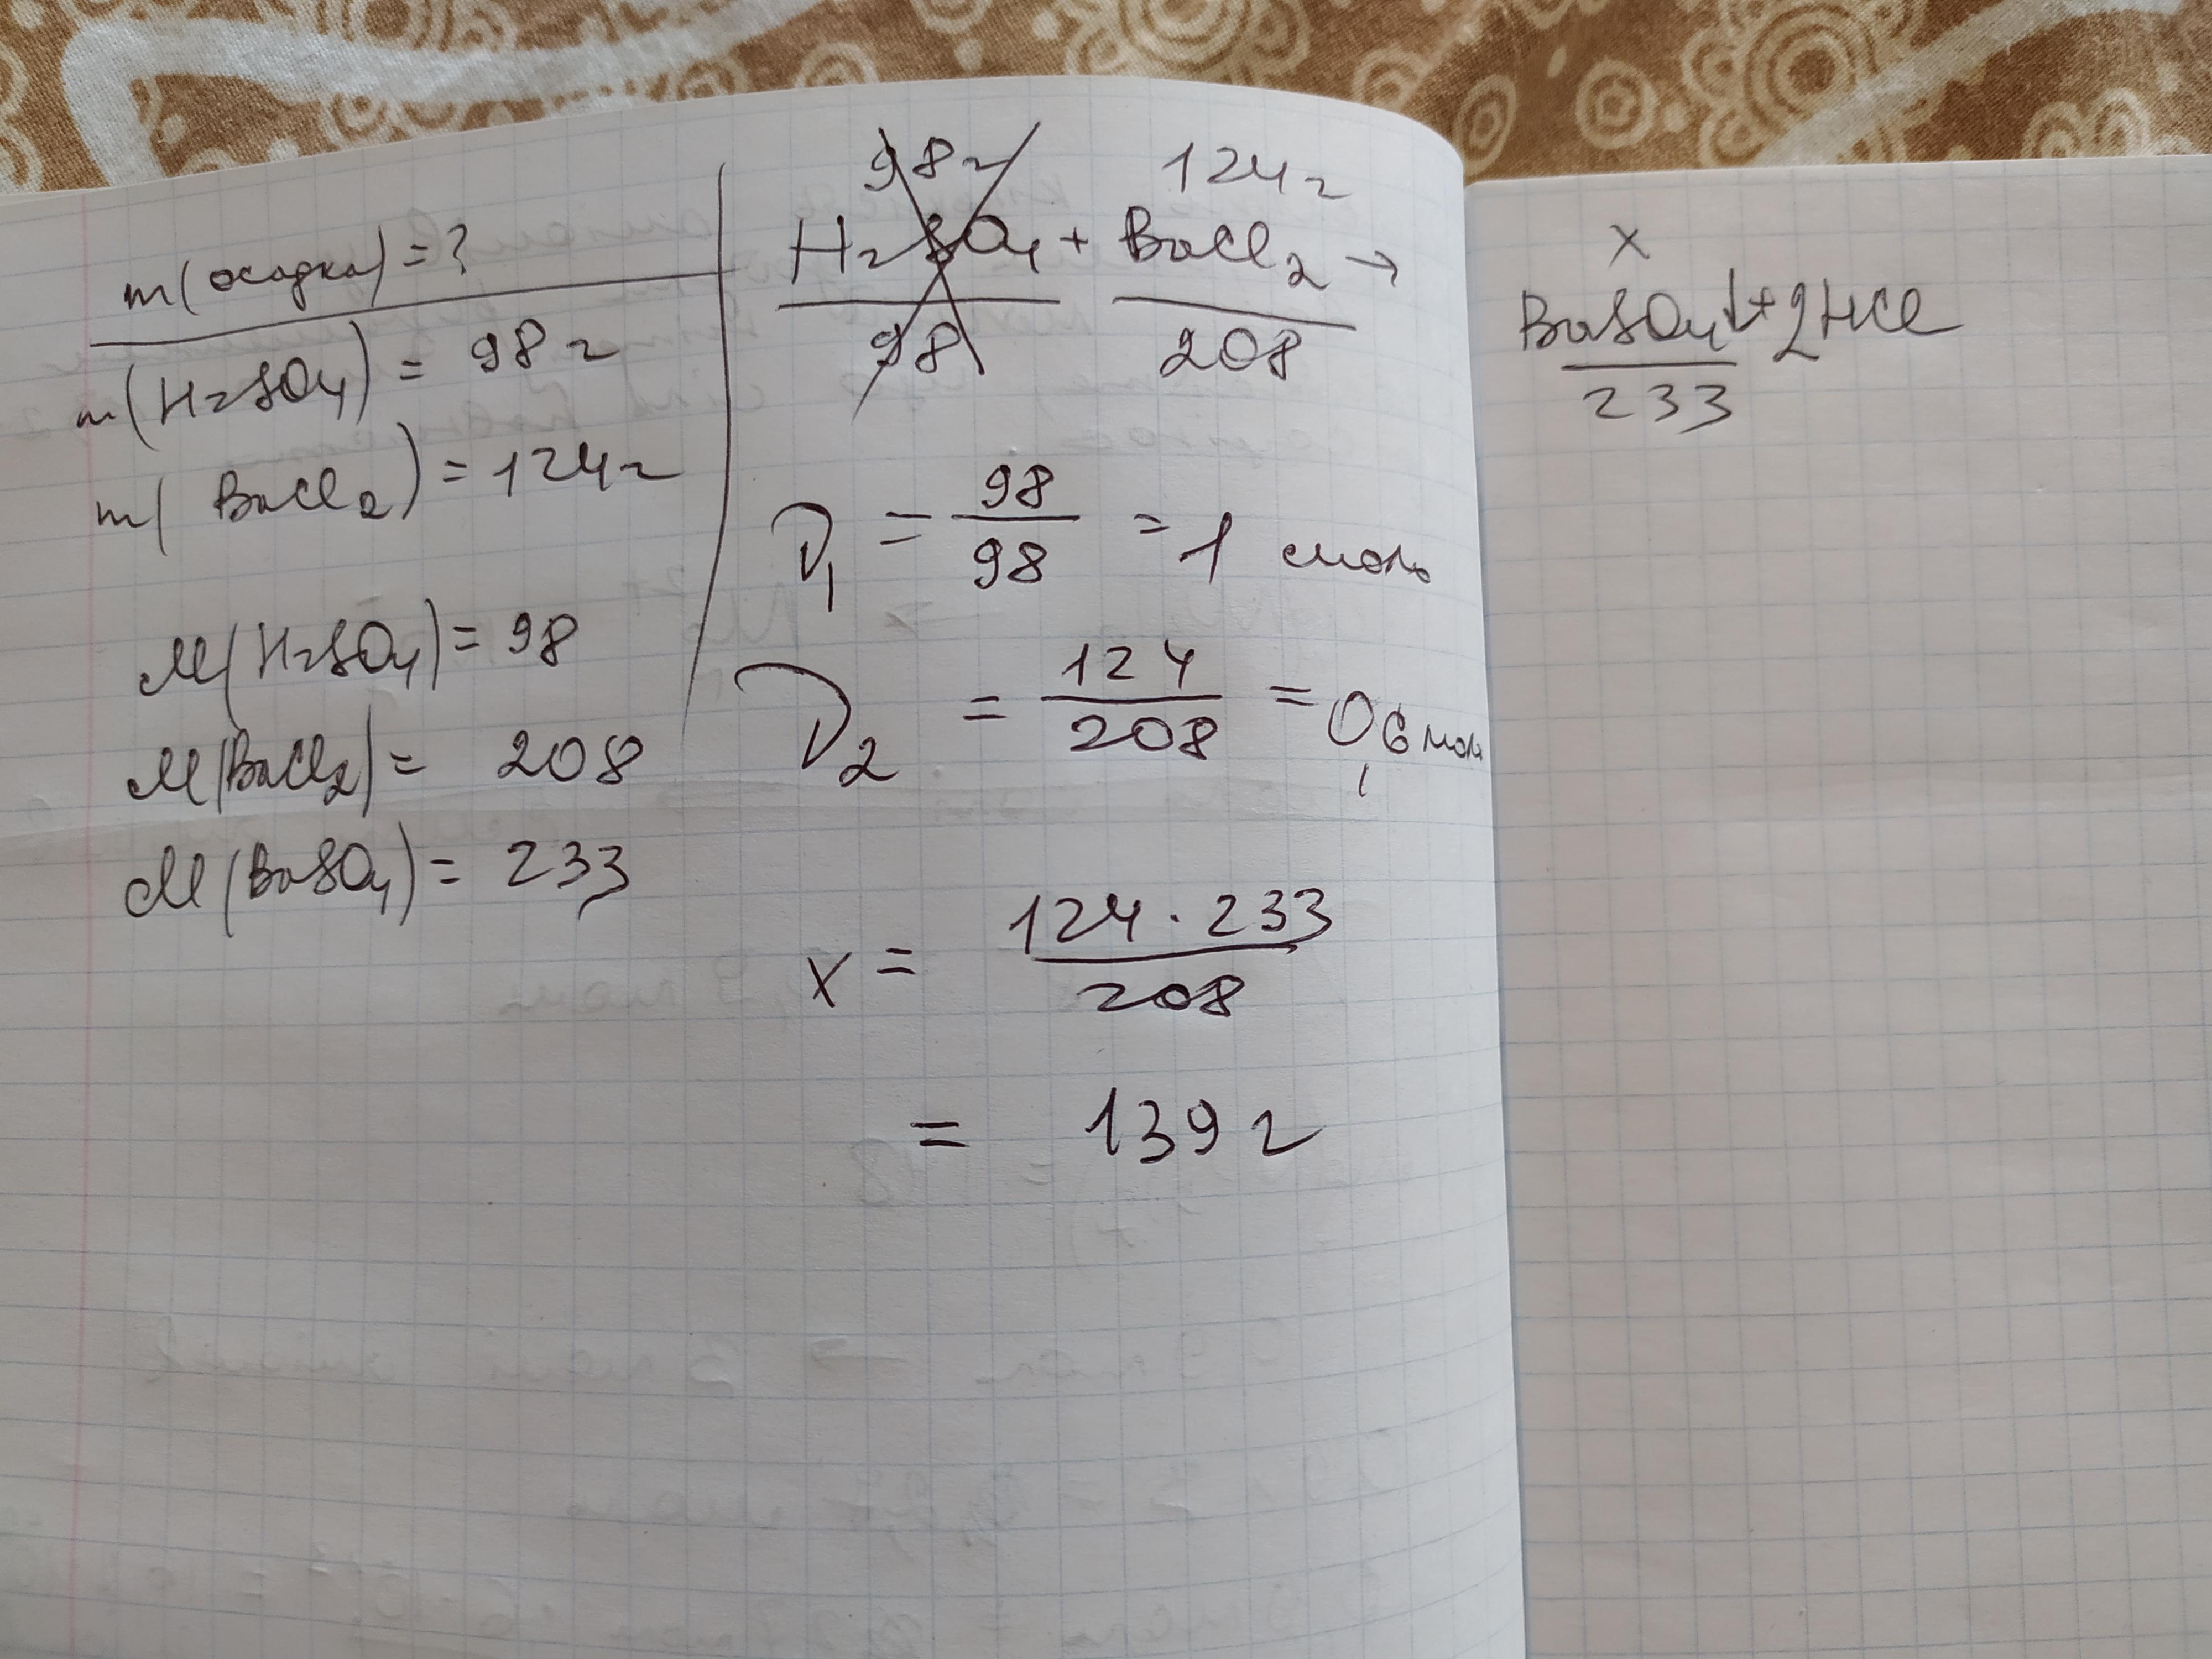 m(осадка) = ?
m(H₂SO₄) = 98 г
m( BaCl₂) = 124 г
M(H₂SO₄) = 98
M(BaCl₂) = 208
M(BaSO₄) = 233
98 г 124 г x
H₂SO₄ + BaCl₂ → BaSO₄↓ + 2HCl
98 208 233
ν₁ = 98/98 = 1 моль
ν₂ = 124/208 = 0,6 моль
x = 124 · 233/208
= 139 г